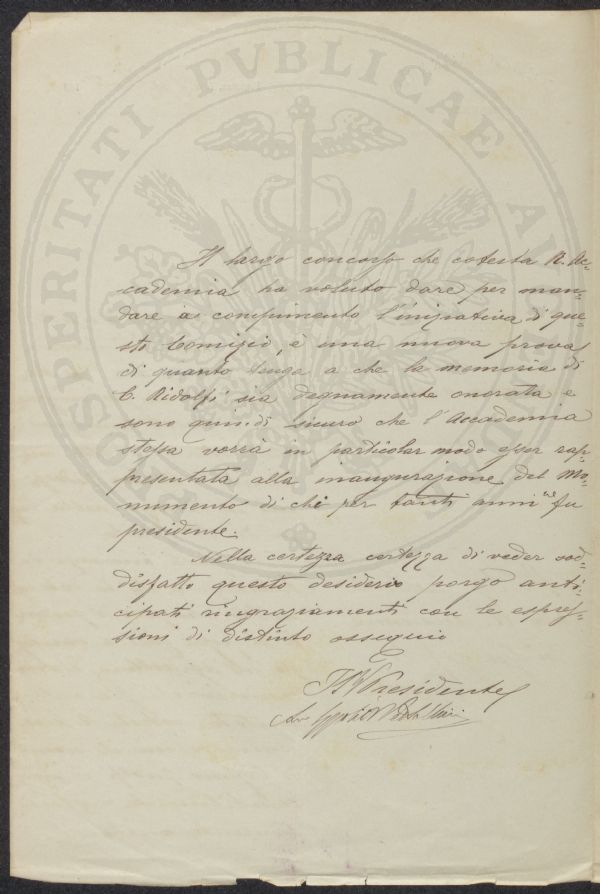 PROSPERITATI PVBLICAE AVGENDAE
Il largo concorso che cotesta R. Ac-
cademia ha voluto dare per man-
dare a compimento l'iniziativa di que-
sto Comizio, è una nuova prova
di quanto tenga a che la memoria di
C. Ridolfi sia degnamente onorata e
sono quindi sicuro che l'Accademia
stessa vorrà in particolar modo esser rap-
presentata alla inaugurazione del Mo-
numento di chi per tanti anni ne fu
presidente.
Nella certezza certezza di veder sod-
disfatto questo desiderio porgo anti-
cipati ringraziamenti con le espres-
sioni di distinto ossequio
Il Presidente